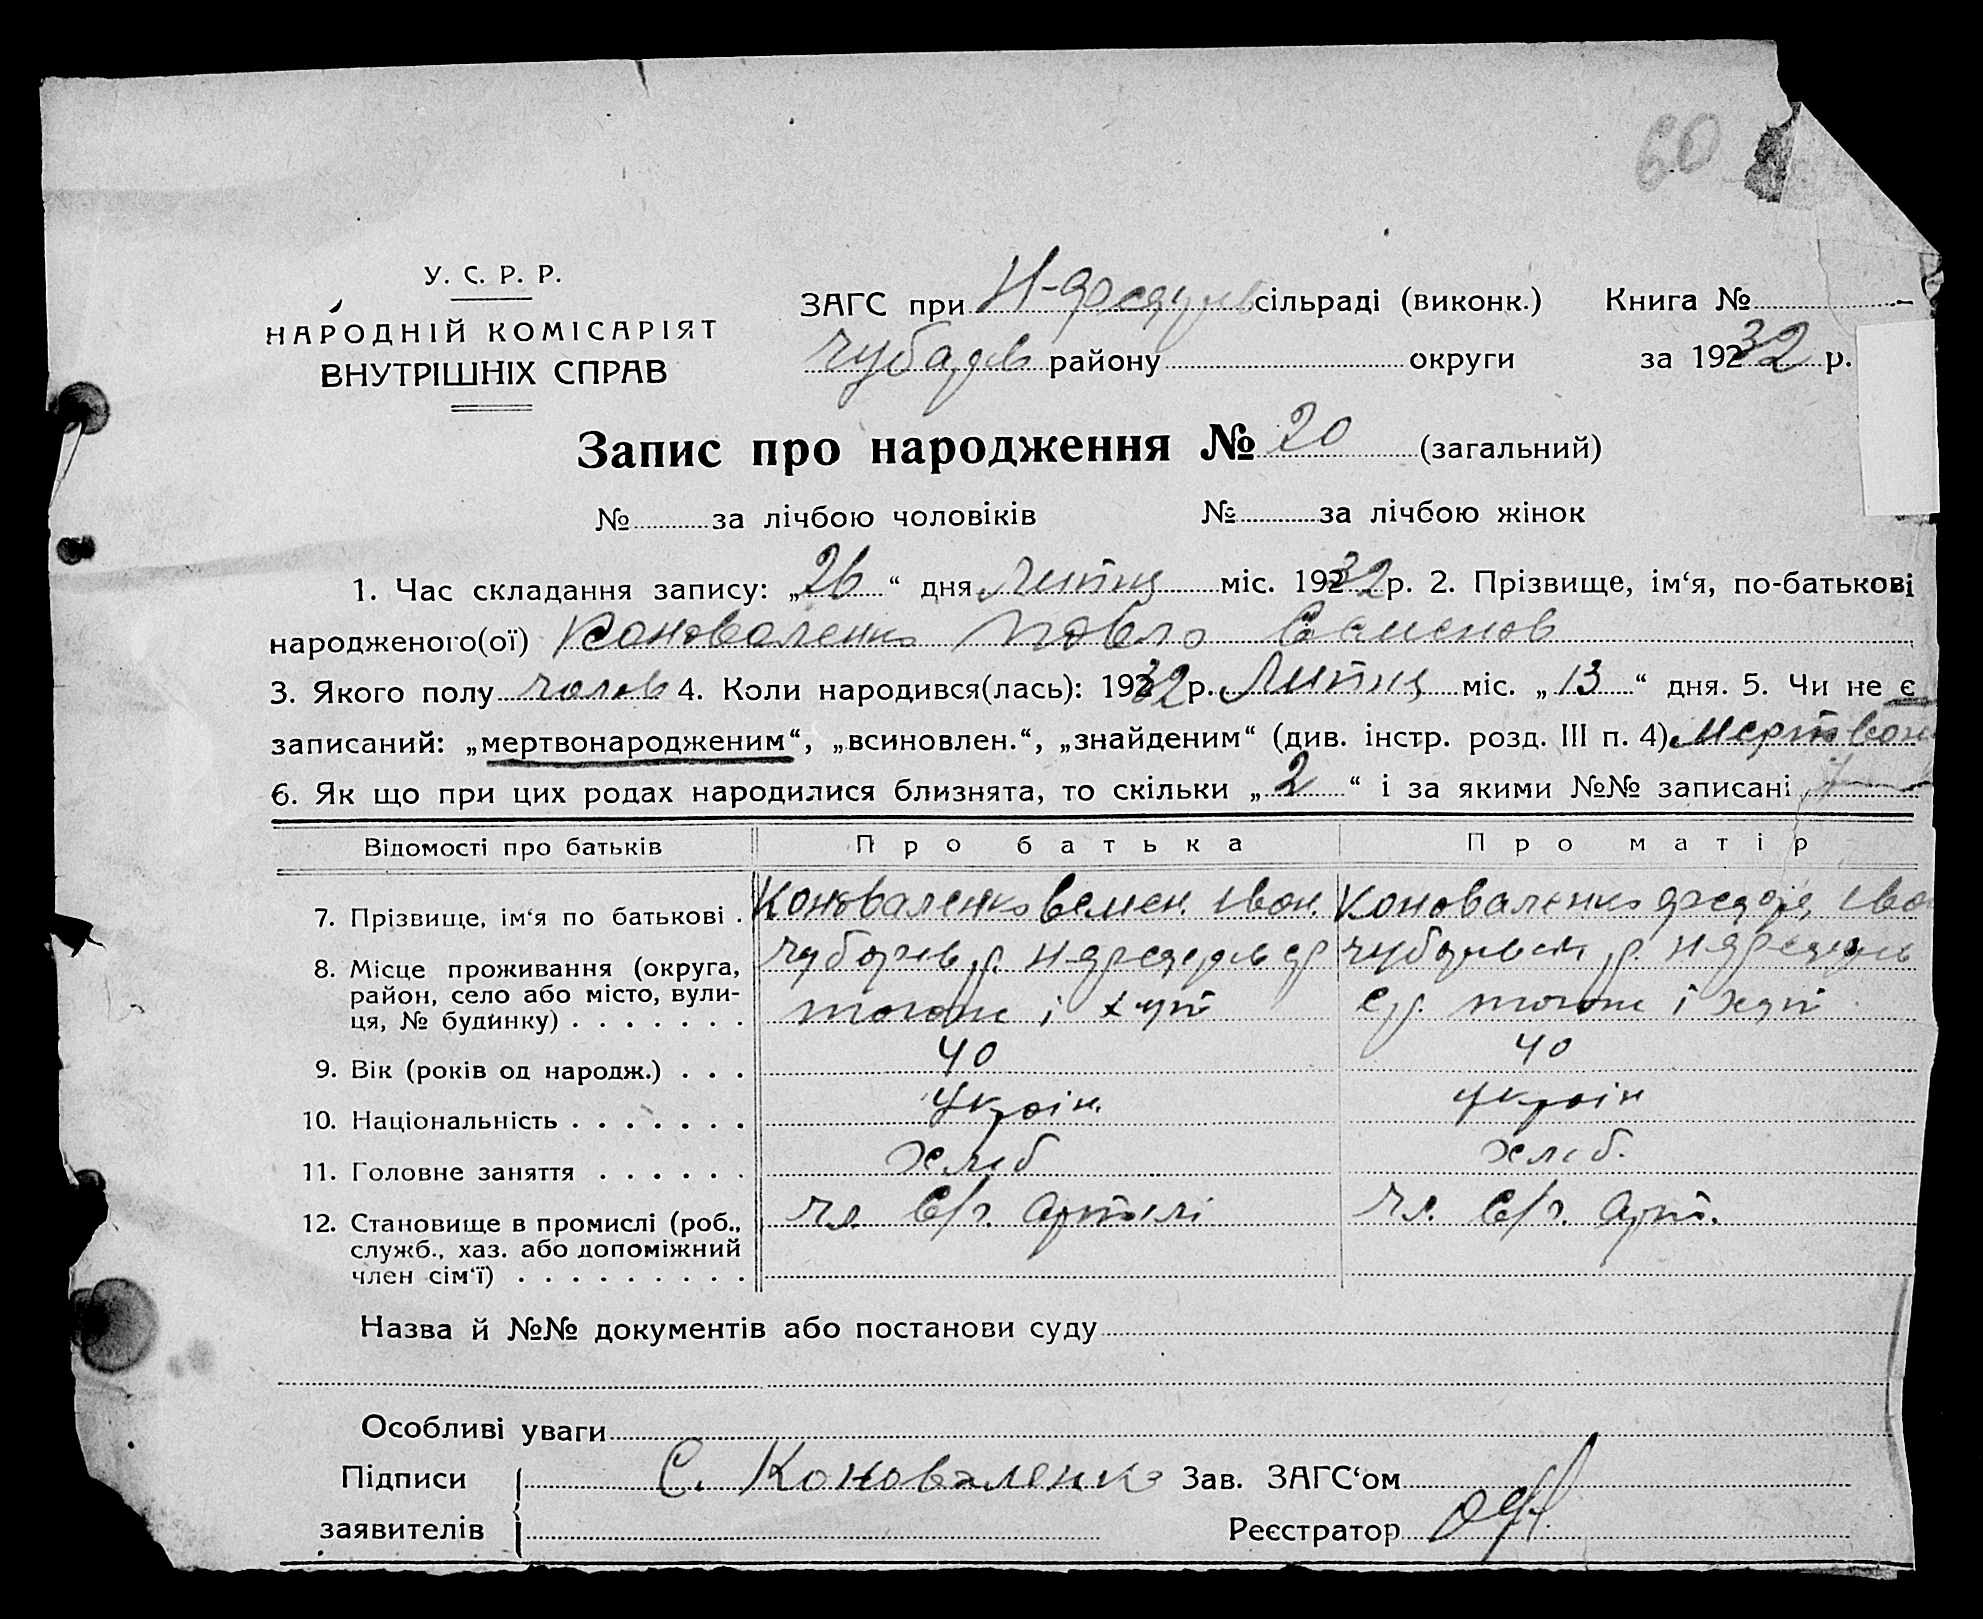 60
У. С. Р. Р.
НАРОДНІЙ КОМІСАРІЯТ
ВНУТРІШНІХ СПРАВ
ЗАГС при Н- сільраді (виконк.) Книга №
Чубарів району округи за 1932 р.
Запис про народження № 20 (загальний)
№ за лічбою чоловіків № за лічбою жінок
1. Час складання запису: „26“ дня Липня міс. 1932 р. 2. Прізвище, ім‘я, по-батькові
народженого(ої) Коноваленко Павло Семенов
3. Якого полу чолов 4. Коли народився(лась): 1932 р. Липня міс. „13“ дня. 5. Чи не є
записаний: „мертвонародженим“, „всиновлен.“, „знайденим“ (див. інстр. розд. III п. 4)
6. Як що при цих родах народилися близнята, то скільки „2“ і за якими №№ записані
Відомості про батьків Про батька Про матір
7. Прізвище, ім‘я по батькові . Коноваленко Семен. Іван. Коноваленко Іва
8. Місце проживання (округа, р. р.
район, село або місто, вули- і хут і хут
ця, № будинку) . . . . . . .
9. Вік (років од народж.) . . . 40 40
10. Національність . . . . . . . Україн. Україн
11. Головне заняття . . . . . . Хліб Хліб.
12. Становище в промислі (роб., Чл. С/г. Артілі Чл. С/г. Арт.
служб., хаз. або допоміжний
член сім‘ї) . . . . . . . . .
Назва й №№ документів або постанови суду
Особливі уваги
Підписи С. Коноваленко Зав. ЗАГС‘ом
заявителів Реєстратор